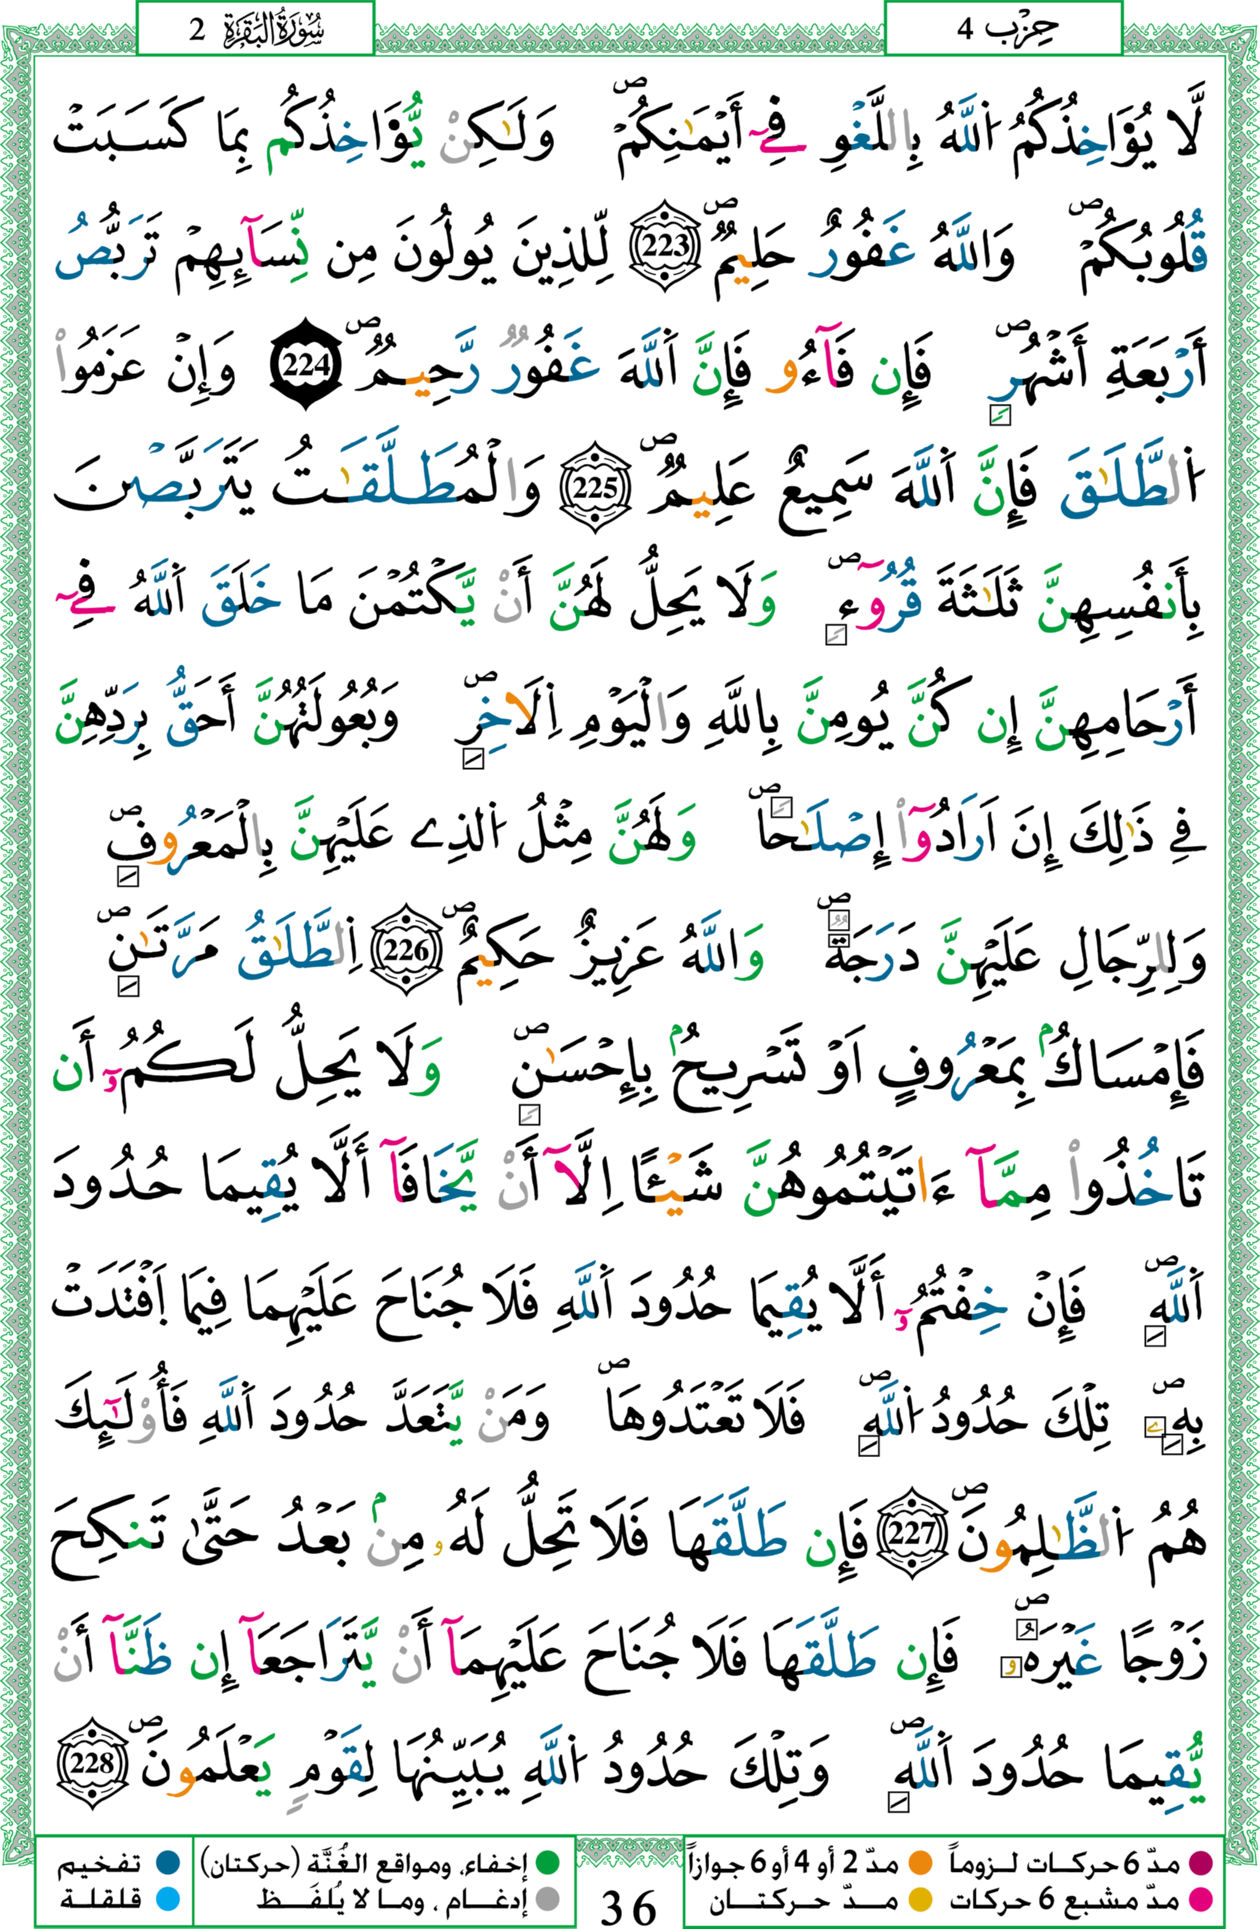 حِزْب 4
سُورَةُ الْبَقَرَةِ 2
لَّا يُؤَاخِذُكُمُ اُ۬للَّهُ بِاللَّغْوِ فِےٓ أَيْمَٰنِكُمْۖ وَلَٰكِنْ يُّؤَاخِذُكُم بِمَا كَسَبَتْ
قُلُوبُكُمْۖ وَاللَّهُ غَفُورٌ حَلِيمٌۖ 223 لِّلذِينَ يُولُونَ مِن نِّسَآئِهِمْ تَرَبُّصُ
أَرْبَعَةِ أَشْهُرٍۖ فَإِن فَآءُو فَإِنَّ اَ۬للَّهَ غَفُورٌ رَّحِيمٌۖ 224 وَإِنْ عَزَمُواْ
اُ۬لطَّلَٰقَ فَإِنَّ اَ۬للَّهَ سَمِيعٌ عَلِيمٌۖ 225 وَالْمُطَلَّقَٰتُ يَتَرَبَّصْنَ
بِأَنفُسِهِنَّ ثَلَٰثَةَ قُرُوٓءٍۖ وَلَا يَحِلُّ لَهُنَّ أَنْ يَّكْتُمْنَ مَا خَلَقَ اَ۬للَّهُ فِےٓ
أَرْحَامِهِنَّ إِن كُنَّ يُومِنَّ بِاللَّهِ وَالْيَوْمِ اِ۬لَاخِرِۖ وَبُعُولَتُهُنَّ أَحَقُّ بِرَدِّهِنَّ
فِے ذَٰلِكَ إِنَ اَرَادُوٓاْ إِصْلَٰحاًۖ وَلَهُنَّ مِثْلُ اُ۬لذِے عَلَيْهِنَّ بِالْمَعْرُوفِۖ
وَلِلرِّجَالِ عَلَيْهِنَّ دَرَجَةٌۖ وَاللَّهُ عَزِيزٌ حَكِيمٌۖ 226 اِ۬لطَّلَٰقُ مَرَّتَٰنِۖ
فَإِمْسَاكُۢ بِمَعْرُوفٍ اَوْ تَسْرِيحُۢ بِإِحْسَٰنٍۖ وَلَا يَحِلُّ لَكُمُۥٓ أَن
تَاخُذُواْ مِمَّآ ءَاتَيْتُمُوهُنَّ شَيْـًٔا اِلَّآ أَنْ يَّخَافَآ أَلَّا يُقِيمَا حُدُودَ
اَ۬للَّهِۖ فَإِنْ خِفْتُمُۥٓ أَلَّا يُقِيمَا حُدُودَ اَ۬للَّهِ فَلَا جُنَاحَ عَلَيْهِمَا فِيمَا اَ۪فْتَدَتْ
بِهِۦۖ تِلْكَ حُدُودُ اُ۬للَّهِۖ فَلَا تَعْتَدُوهَاۖ وَمَنْ يَّتَعَدَّ حُدُودَ اَ۬للَّهِ فَأُوْلَٰٓئِكَ
هُمُ اُ۬لظَّٰلِمُونَۖ 227 فَإِن طَلَّقَهَا فَلَا تَحِلُّ لَهُۥ مِنۢ بَعْدُ حَتَّىٰ تَنكِحَ
زَوْجًا غَيْرَهُۥۖ فَإِن طَلَّقَهَا فَلَا جُنَاحَ عَلَيْهِمَآ أَنْ يَّتَرَاجَعَآ إِن ظَنَّآ أَنْ
يُّقِيمَا حُدُودَ اَ۬للَّهِۖ وَتِلْكَ حُدُودُ اُ۬للَّهِ يُبَيِّنُهَا لِقَوْمٍ يَعْلَمُونَۖ 228
مدّ 6 حركات لـزوماً مدّ 2 أو 4 أو 6 جوازاً إخفاء، ومواقع الغُنَّة (حركتان) تفخيم
مدّ مشبع 6 حركات مــدّ حركتــان إدغــام ، ومـا لا يُلفَــظ قلقلة
36